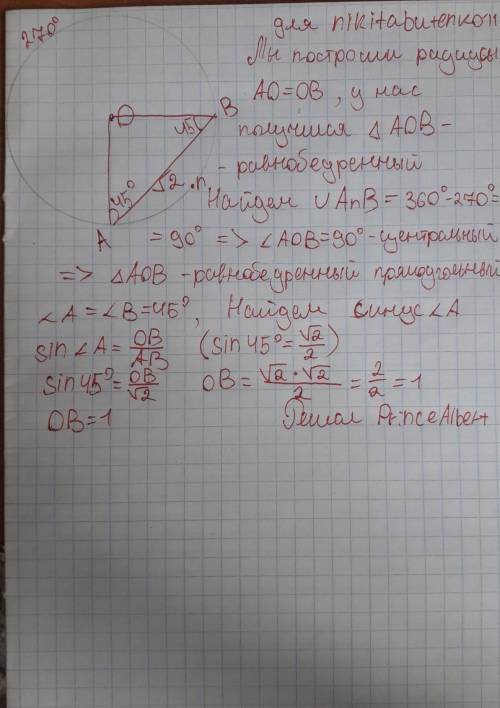 270°
для nikitabutenko11
Мы построили радиусы
AO=OB, у нас
получился △AOB-
-равнобедренный
Найдем ∪AnB=360°-270°=
=90° => ∠AOB=90°-центральный
=> △AOB -равнобедренный прямоугольный
∠A=∠B=45°, Найдем синус ∠A
sin∠A=OB/AB (sin45°=√2/2)
sin45°=OB/√2 OB=√2·√2/2=2/2=1
OB=1 Решал PrinceAlbert
O B
45°
45° √2 n
A